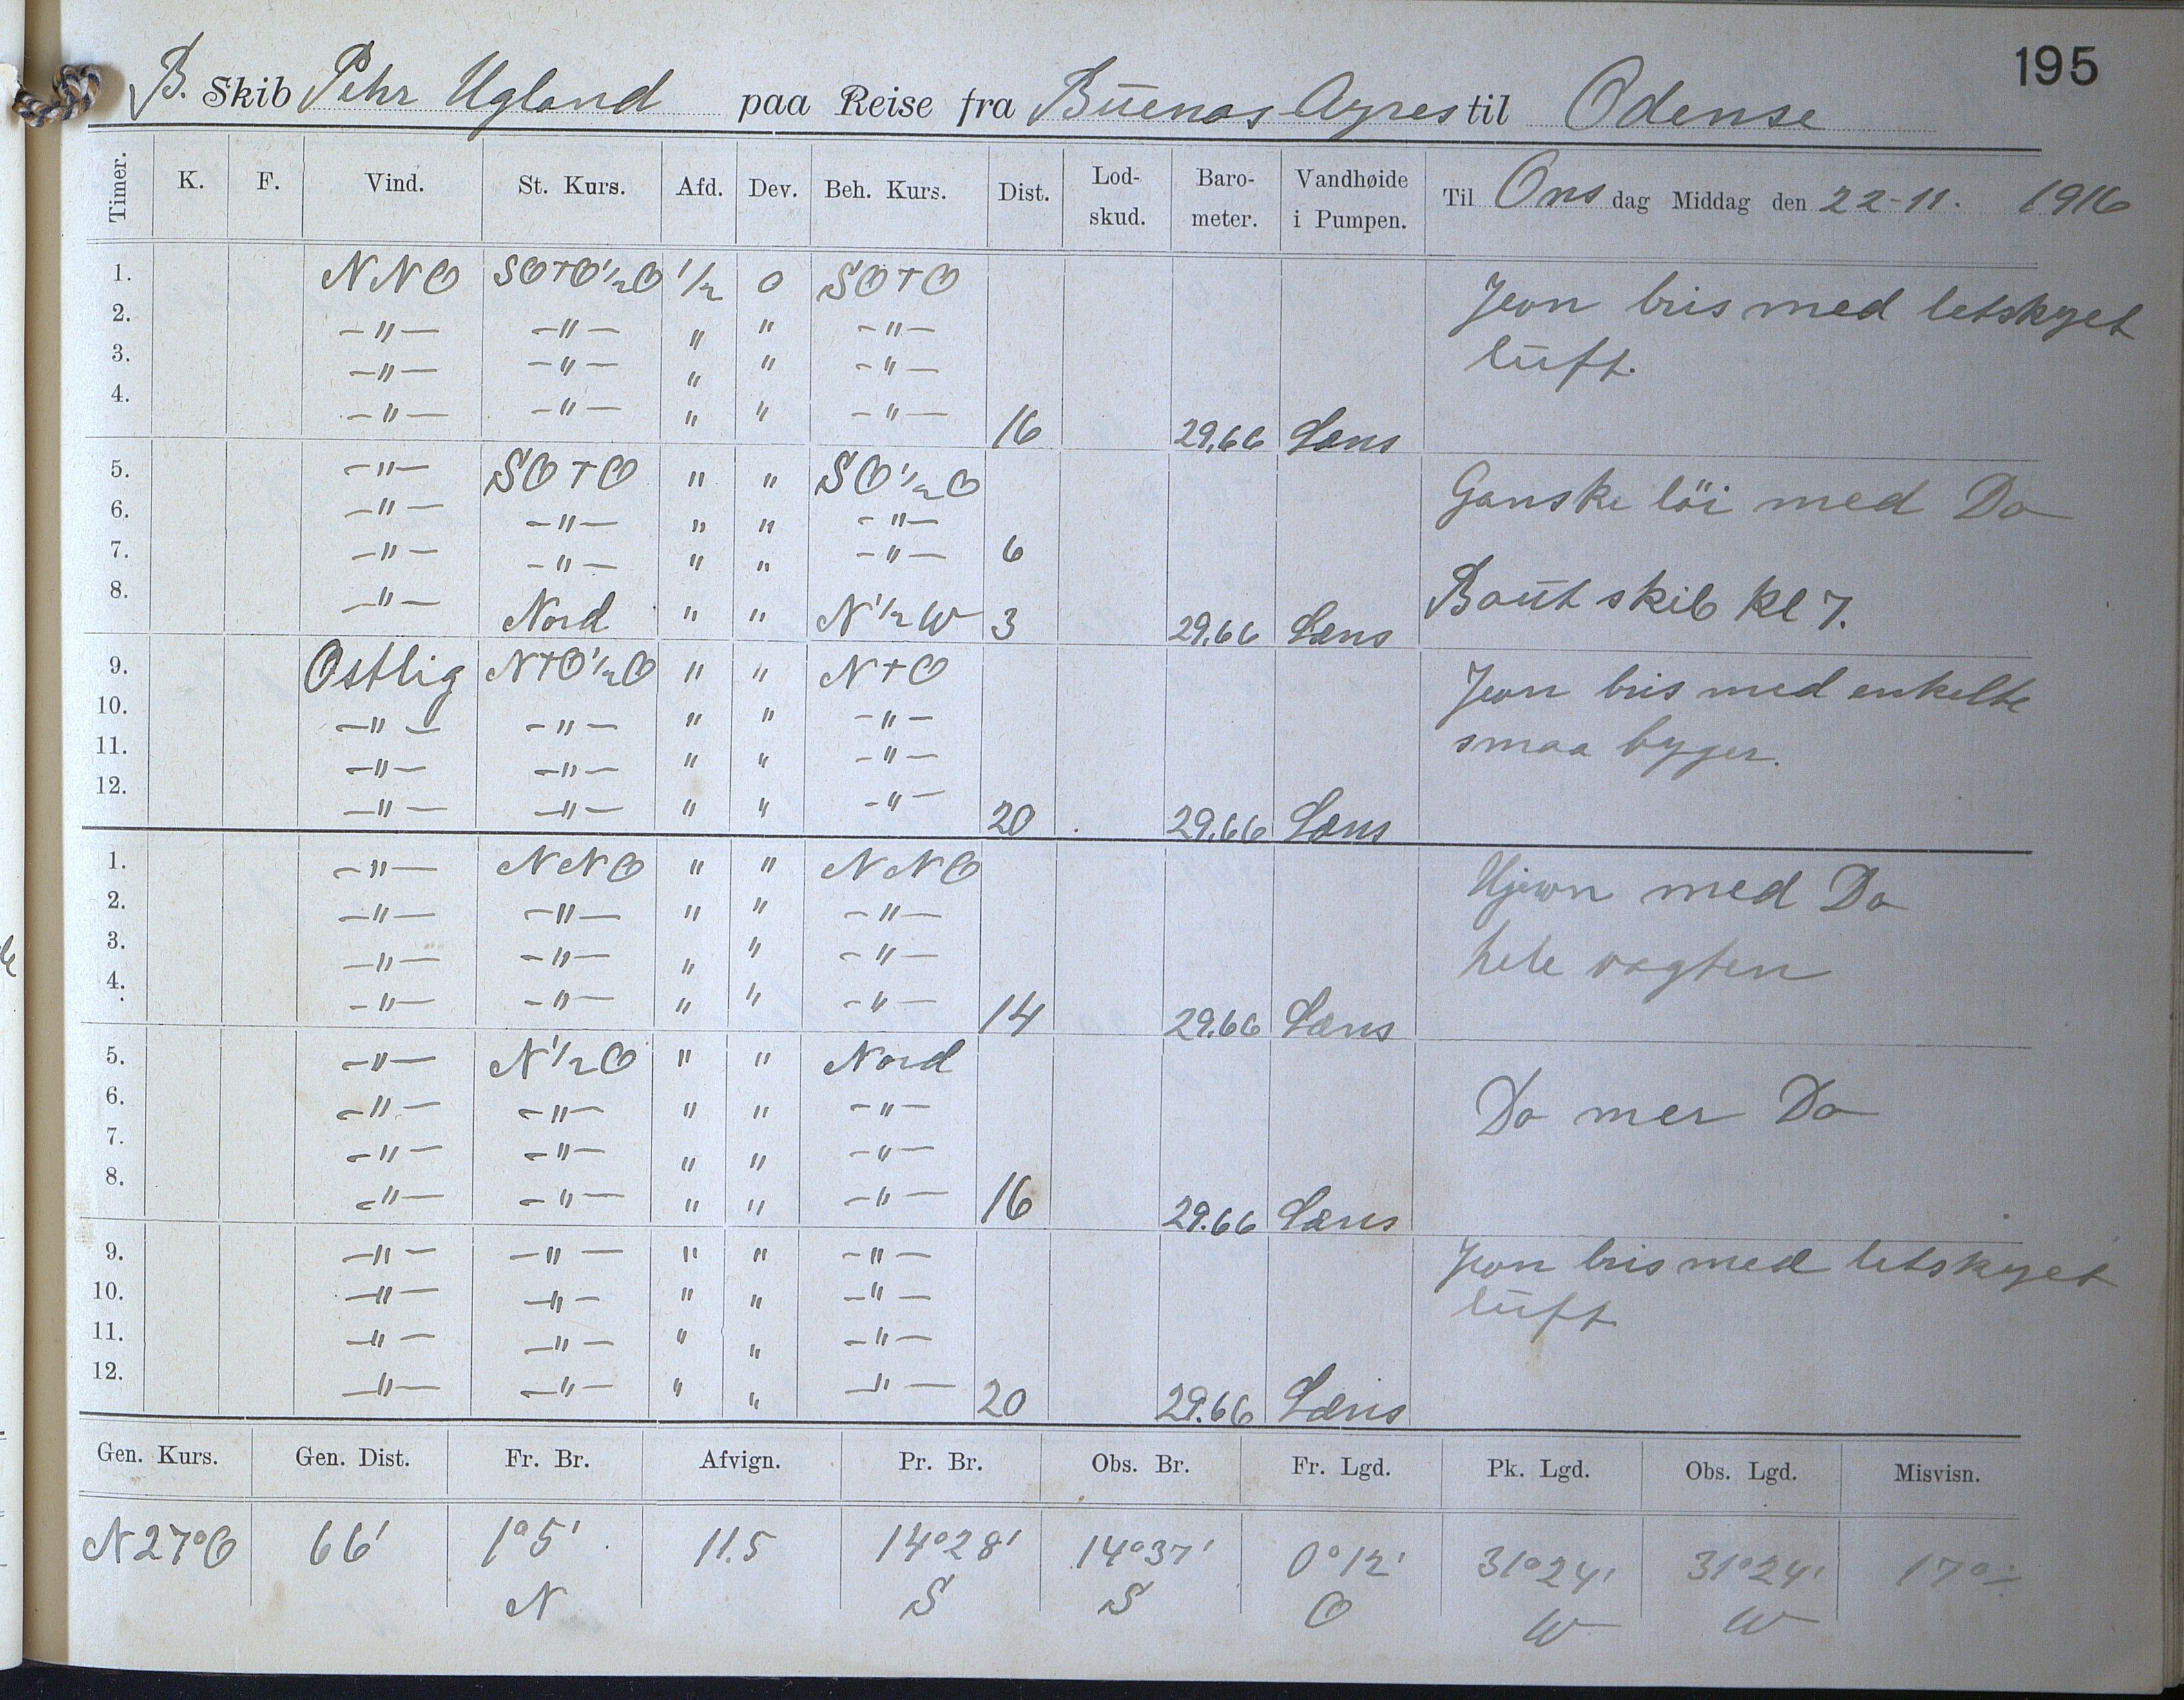 195
B. Skib Pehr Ugland paa Reise fra Buenos Ayres til Odense
Timer. K. F. Vind. St. Kurs. Afd. Dev. Beh. Kurs. Dist. Lod-skud. Baro-meter. Vandhøide i Pumpen. Til Ons dag Middag den 22-11. 1916
1. NNO SO+O½O ½ 0 SO+O Jevn bris med letskyet
2. -"- -"- " " -"- luft.
3. -"- -"- " " -"-
4. -"- -"- " " -"- 16 29.66 Læns
5. -"- SO+O " " SO½O Ganske löi med Do
6. -"- -"- " " -"-
7. -"- -"- " " -"- 6
8. -"- Nord " " N½W 3 29.66 Læns Baut skib kl 7.
9. Ostlig N+O½O " " N+O Jevn bris med enkelte
10. -"- -"- " " -"- smaa byger.
11. -"- -"- " " -"-
12. -"- -"- " " -"- 20 29.66 Læns
1. -"- NNO " " NNO Ujevn med Do
2. -"- -"- " " -"- hele vagten
3. -"- -"- " " -"-
4. -"- -"- " " -"- 14 29.66 Læns
5. -"- N½O " " Nord
6. -"- -"- " " -"- Do mer Do
7. -"- -"- " " -"-
8. -"- -"- " " -"- 16 29.66 Læns
9. -"- -"- " " -"- Jevn bris med letskyet
10. -"- -"- " " -"- luft
11. -"- -"- " " -"-
12. -"- -"- " " -"- 20 29.66 Læns
Gen. Kurs. Gen. Dist. Fr. Br. Afvign. Pr. Br. Obs. Br. Fr. Lgd. Pk. Lgd. Obs. Lgd. Misvisn.
N27°O 66' 1°5' 11.5 14°28' 14°37' 0°12' 31°24' 31°24' 17°÷
N S S O W W